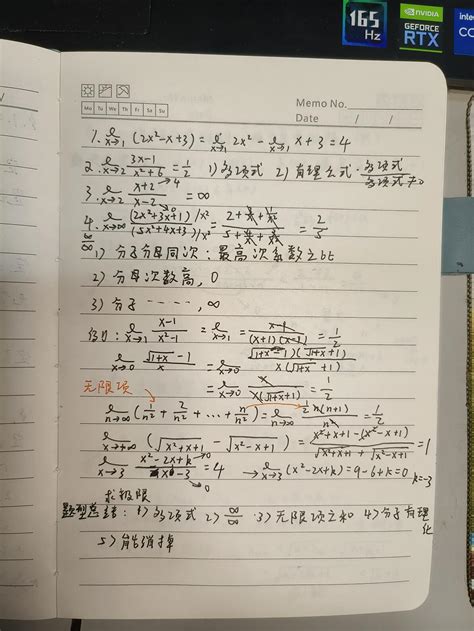 165
Hz
NVIDIA
GEFORCE
RTX
intel
CO
Memo No.
Mo Tu We Th Fr Sa Su
Date / /
1. lim x→1 (2x²-x+3) = lim x→1 2x² - lim x→1 x+3 = 4
2. lim x→2 (3x-1)/(x²+6) = 1/2 1) 多项式 2) 有理分式: 多项式/多项式≠0
3. lim x→2 (x+2)/(x-2) = ∞ →4 →0
4. lim x→∞ (2x²+3x+1)/x² / (5x²+4x+3)/x² = 2/5
∞/∞ 1) 分子分母同次: 最高次系数之比
2) 分母次数高, 0
3) 分子 ‥‥‥, ∞
例: lim x→1 (x-1)/(x²-1) = lim x→1 (x-1)/((x+1)(x-1)) = 1/2
lim x→0 (√(1+x)-1)/x = lim x→0 (√(1+x)-1)(√(1+x)+1)/(x(√(1+x)+1))
无限项 = lim x→0 x/(x(√(1+x)+1)) = 1/2
lim n→∞ (1/n²+2/n²+…+n/n²) = lim n→∞ ½n(n+1)/n² = 1/2
lim x→+∞ (√(x²+x+1)-√(x²-x+1)) = (x²+x+1-(x²-x+1))/(√(x²+x+1)+√(x²-x+1)) = 1
lim x→3 (x²-2x+k)/(x-3) = 4 →0 →0 → lim x→3 (x²-2x+k) = 9-6+k=0 k=-3
求极限
题型总结: 1) 多项式 2) ∞/∞ 3) 无限项之和 4) 分子有理化
5) 能消掉